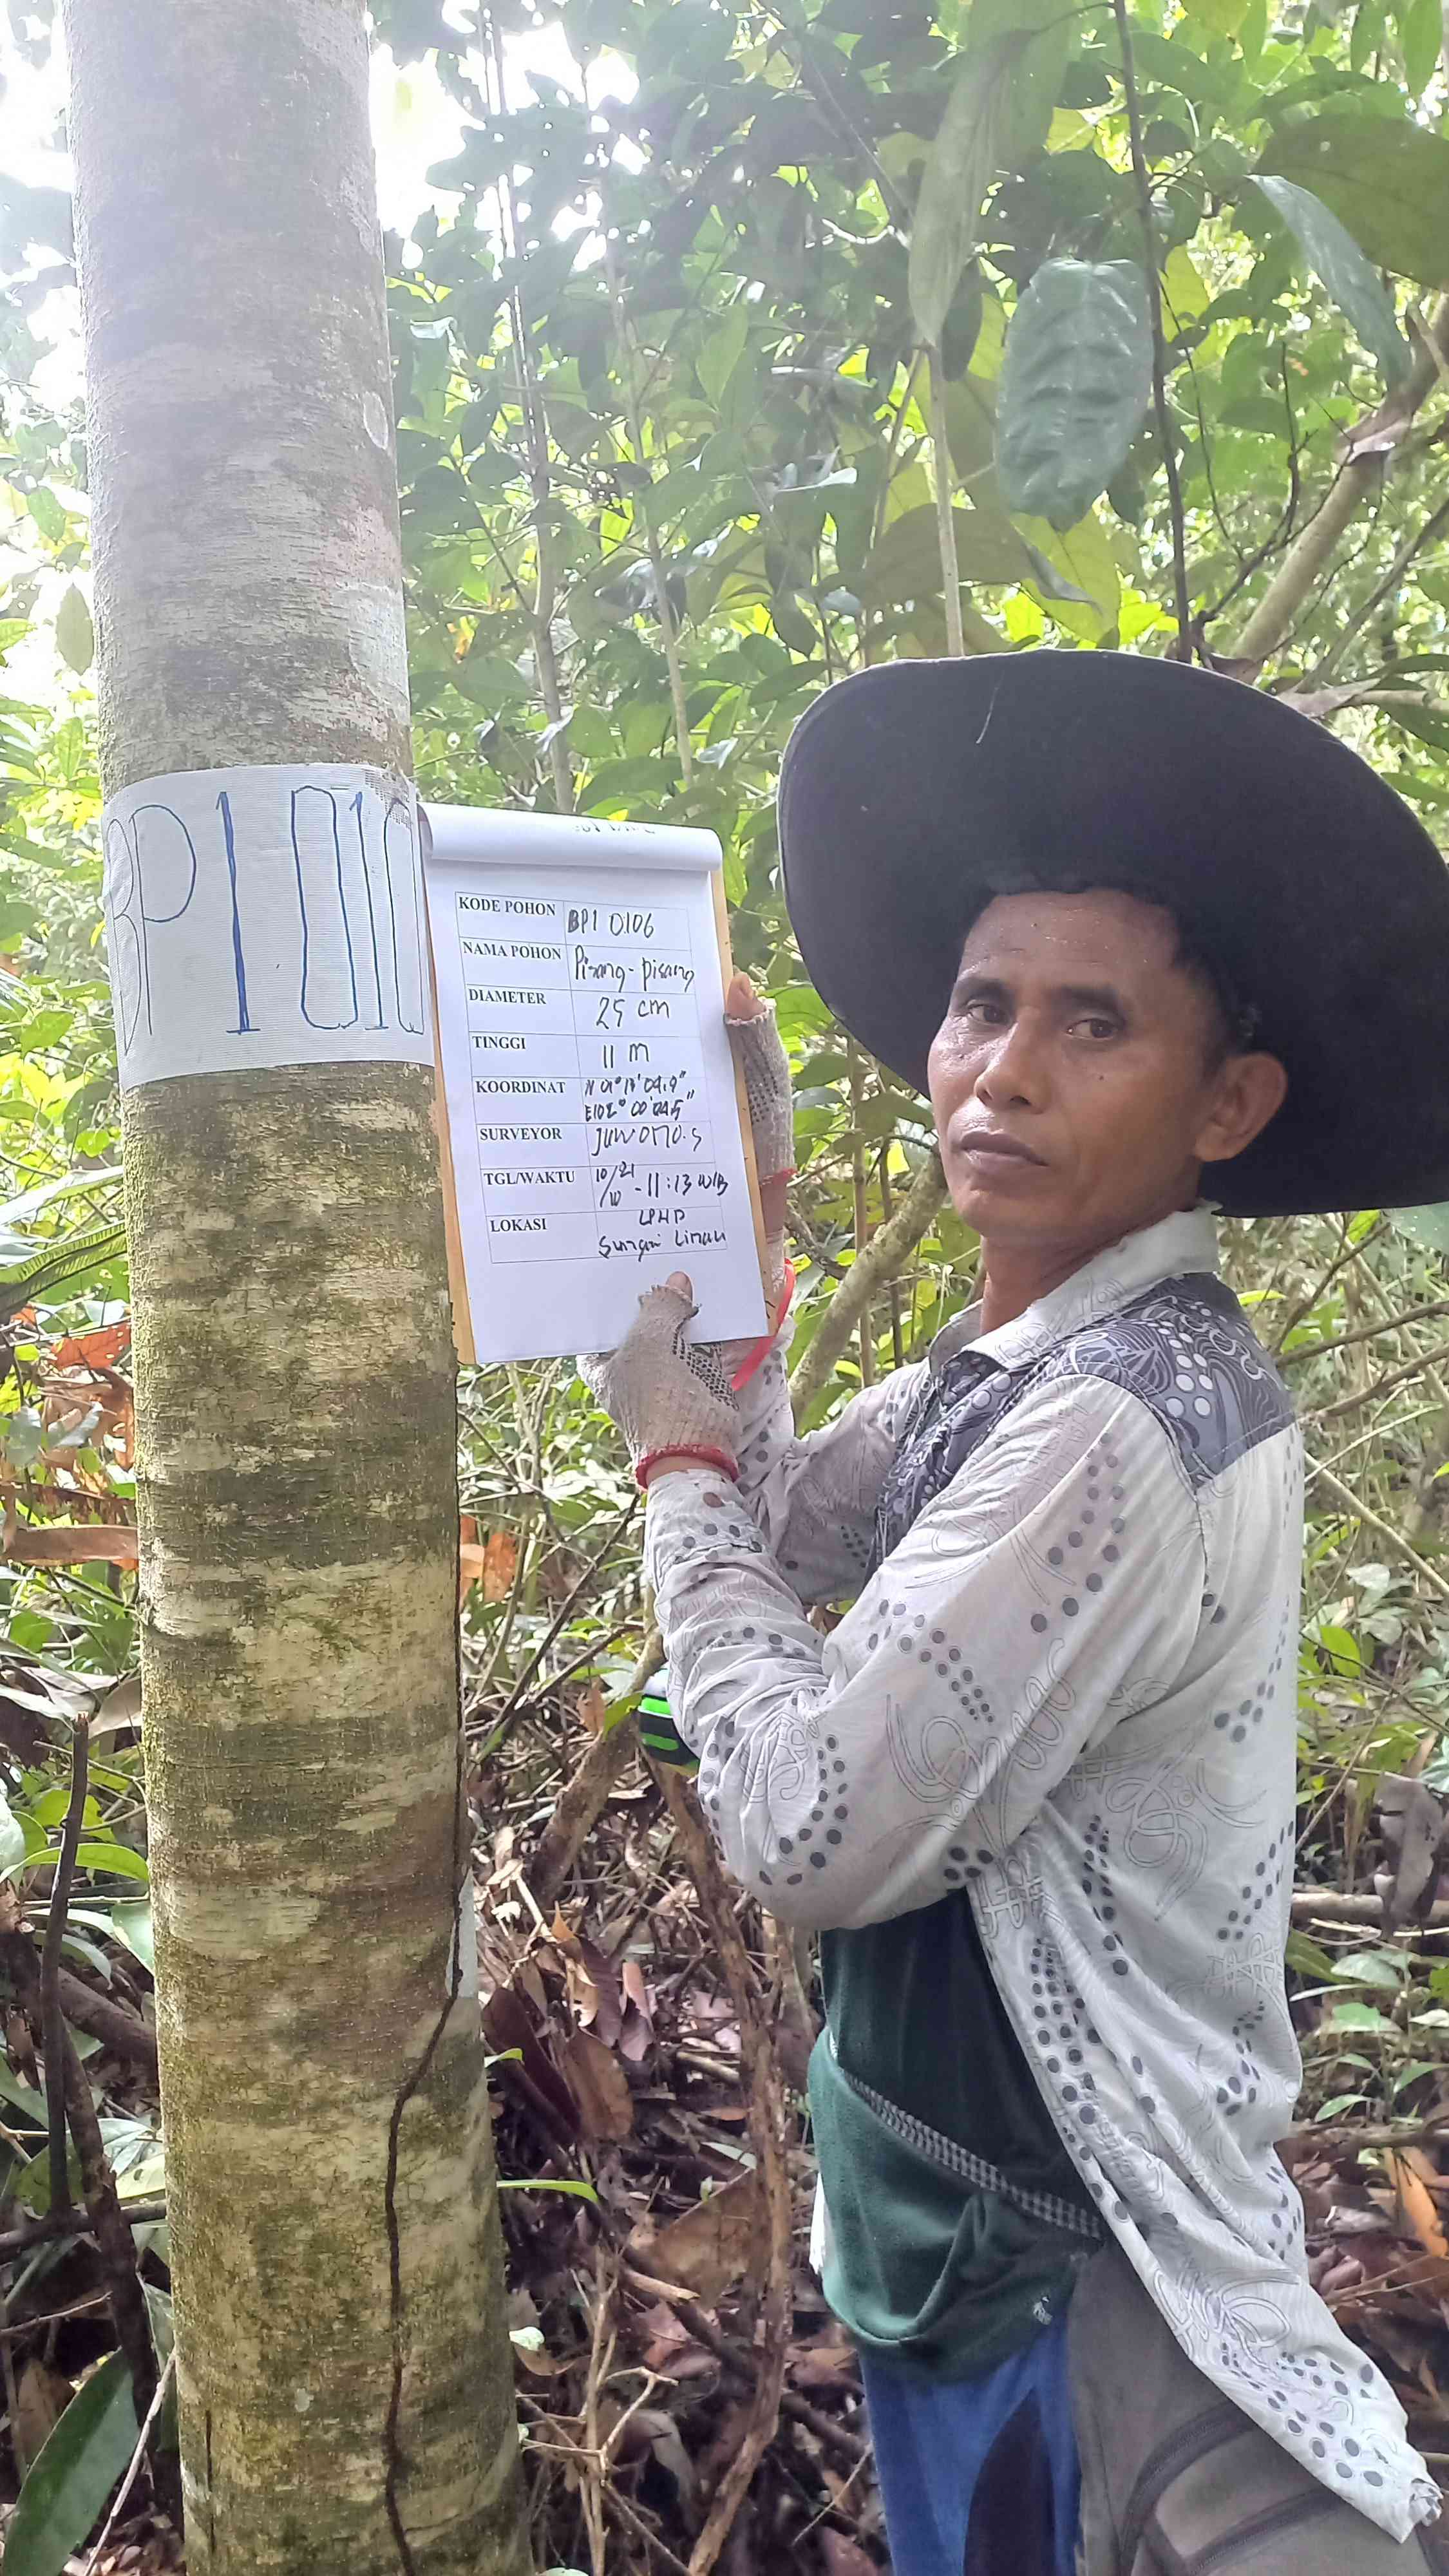 BP1 010
KODE POHON BP1 0106
NAMA POHON Pisang-pisang
DIAMETER 25 cm
TINGGI 11 m
KOORDINAT
SURVEYOR JUWONO.S
TGL/WAKTU 10/10 21 - 11:13 WIB
LOKASI LPHD
Sungai Limau